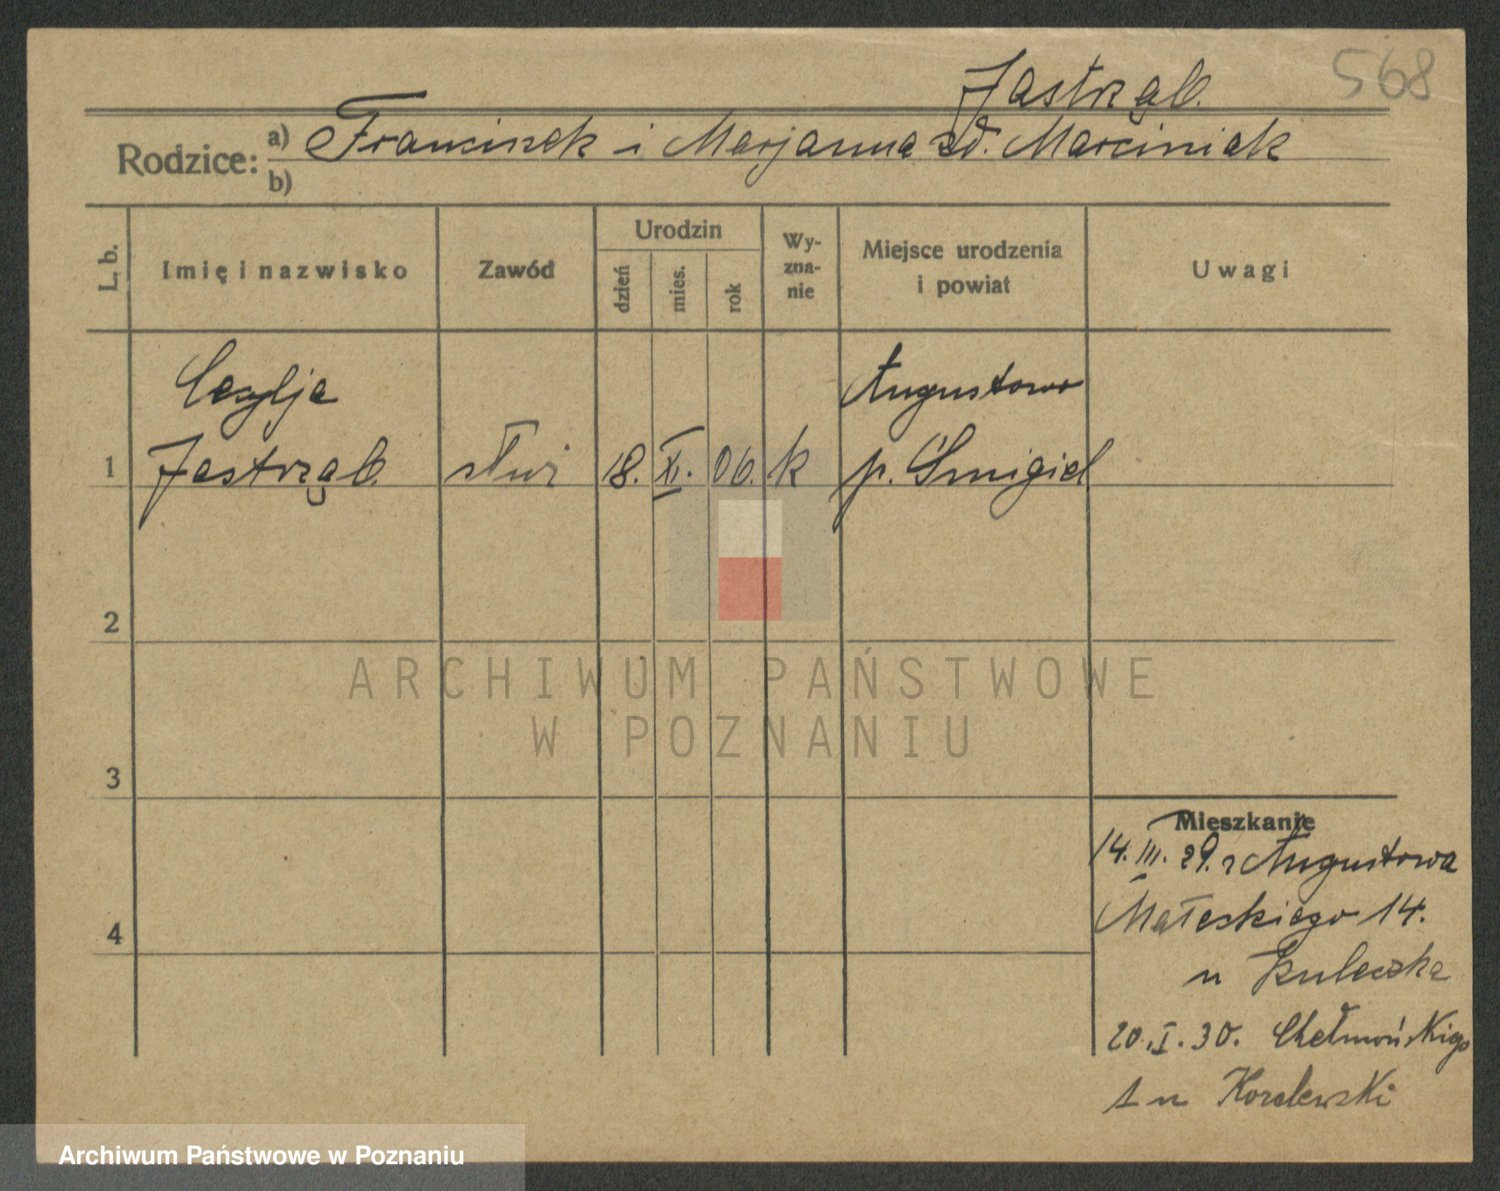 568
Jastrząb.
Rodzice: a) Franciszek i Marjanna zd. Marciniak
b)
L. b.
Imię i nazwisko
Zawód
Urodzin
dzień
mies.
rok
Wy-
zna-
nie
Miejsce urodzenia
i powiat
Uwagi
Cecylja
Augustowo
1 Jastrząb. służ 18. XI. 06. k p. Śmigiel
2
3
4
Mieszkanie
14. III. 29. z Augustowa
Małeckiego 14.
u Kuleczka
20. I. 30. Chełmońskiego
1 u Koralewski
ARCHIWUM PAŃSTWOWE
W POZNANIU
Archiwum Państwowe w Poznaniu